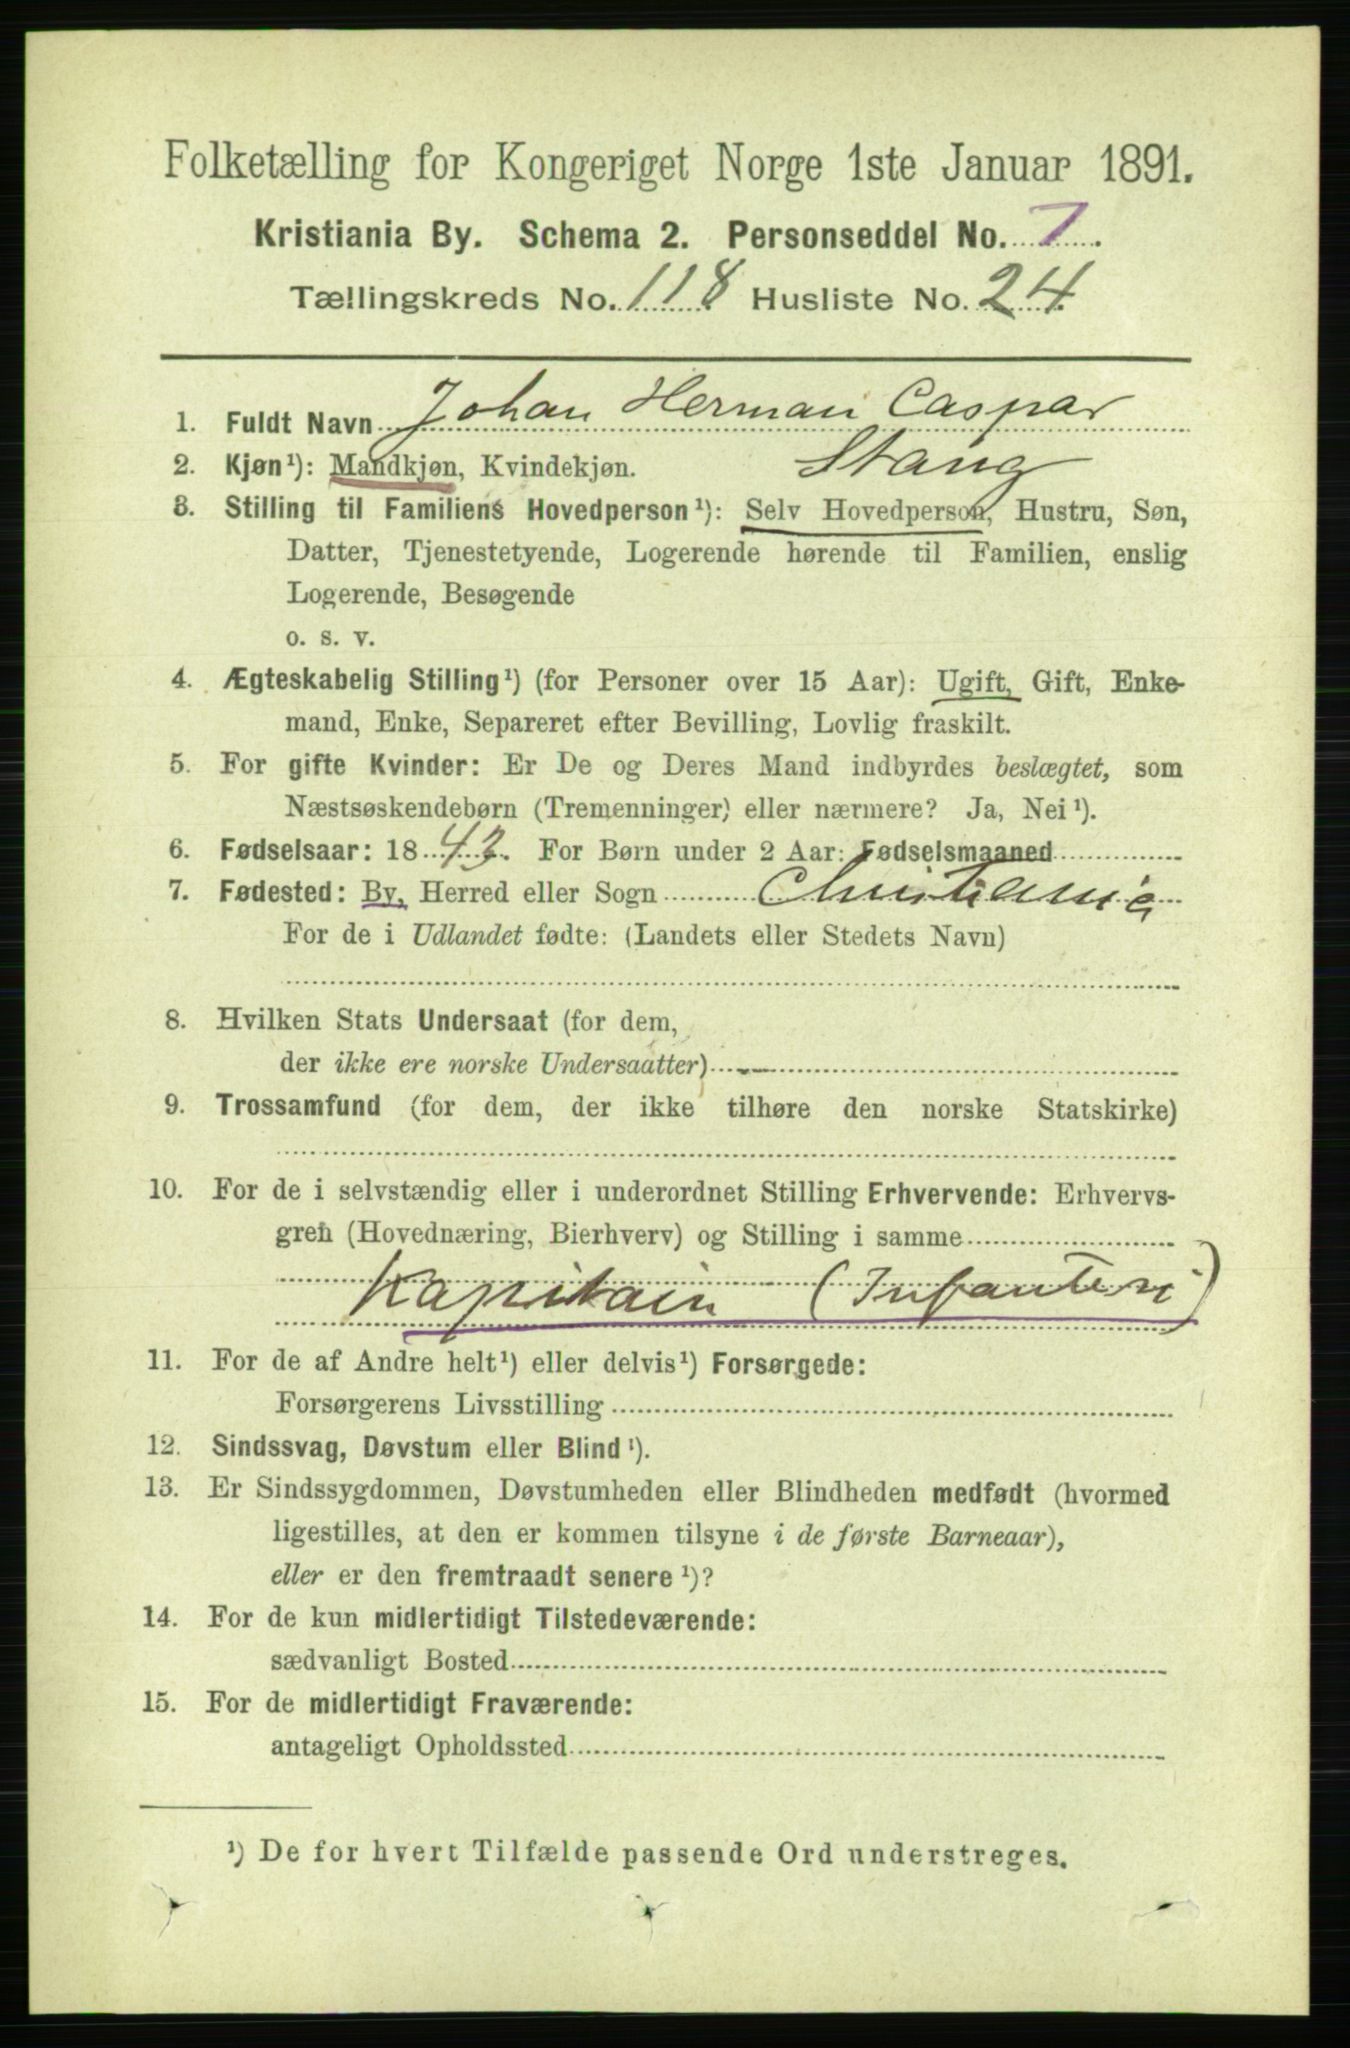 Folketælling for Kongeriget Norge 1ste Januar 1891.
Kristiania By. Schema 2. Personseddel No. 7.
Tællingskreds No. 118 Husliste No. 24.
1. Fuldt Navn Johan Herman Caspar
Stang
2. Kjøn¹): Mandkjøn, Kvindekjøn.
3. Stilling til Familiens Hovedperson¹): Selv Hovedperson, Hustru, Søn,
Datter, Tjenestetyende, Logerende hørende til Familien, enslig
Logerende, Besøgende
o. s. v.
4. Ægteskabelig Stilling¹) (for Personer over 15 Aar): Ugift, Gift, Enke-
mand, Enke, Separeret efter Bevilling, Lovlig fraskilt.
5. For gifte Kvinder: Er De og Deres Mand indbyrdes beslægtet, som
Næstsøskendebørn (Tremenninger) eller nærmere? Ja, Nei¹).
6. Fødselsaar: 1843. For Børn under 2 Aar: Fødselsmaaned
7. Fødested: By, Herred eller Sogn Christiania
For de i Udlandet fødte: (Landets eller Stedets Navn)
8. Hvilken Stats Undersaat (for dem,
der ikke ere norske Undersaatter)
9. Trossamfund (for dem, der ikke tilhøre den norske Statskirke)
10. For de i selvstændig eller i underordnet Stilling Erhvervende: Erhvervs-
gren (Hovednæring, Bierhverv) og Stilling i samme
Kapitain (Infanteri)
11. For de af Andre helt¹) eller delvis¹) Forsørgede:
Forsørgerens Livsstilling
12. Sindssvag, Døvstum eller Blind¹).
13. Er Sindssygdommen, Døvstumheden eller Blindheden medfødt (hvormed
ligestilles, at den er kommen tilsyne i de første Barneaar),
eller er den fremtraadt senere¹)?
14. For de kun midlertidigt Tilstedeværende:
sædvanligt Bosted
15. For de midlertidigt Fraværende:
antageligt Opholdssted
¹) De for hvert Tilfælde passende Ord understreges.